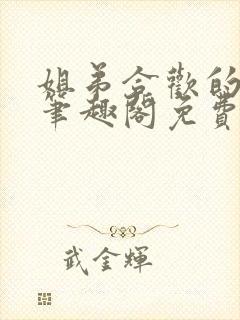 姐弟合歡的
筆趣閣免費
武金輝